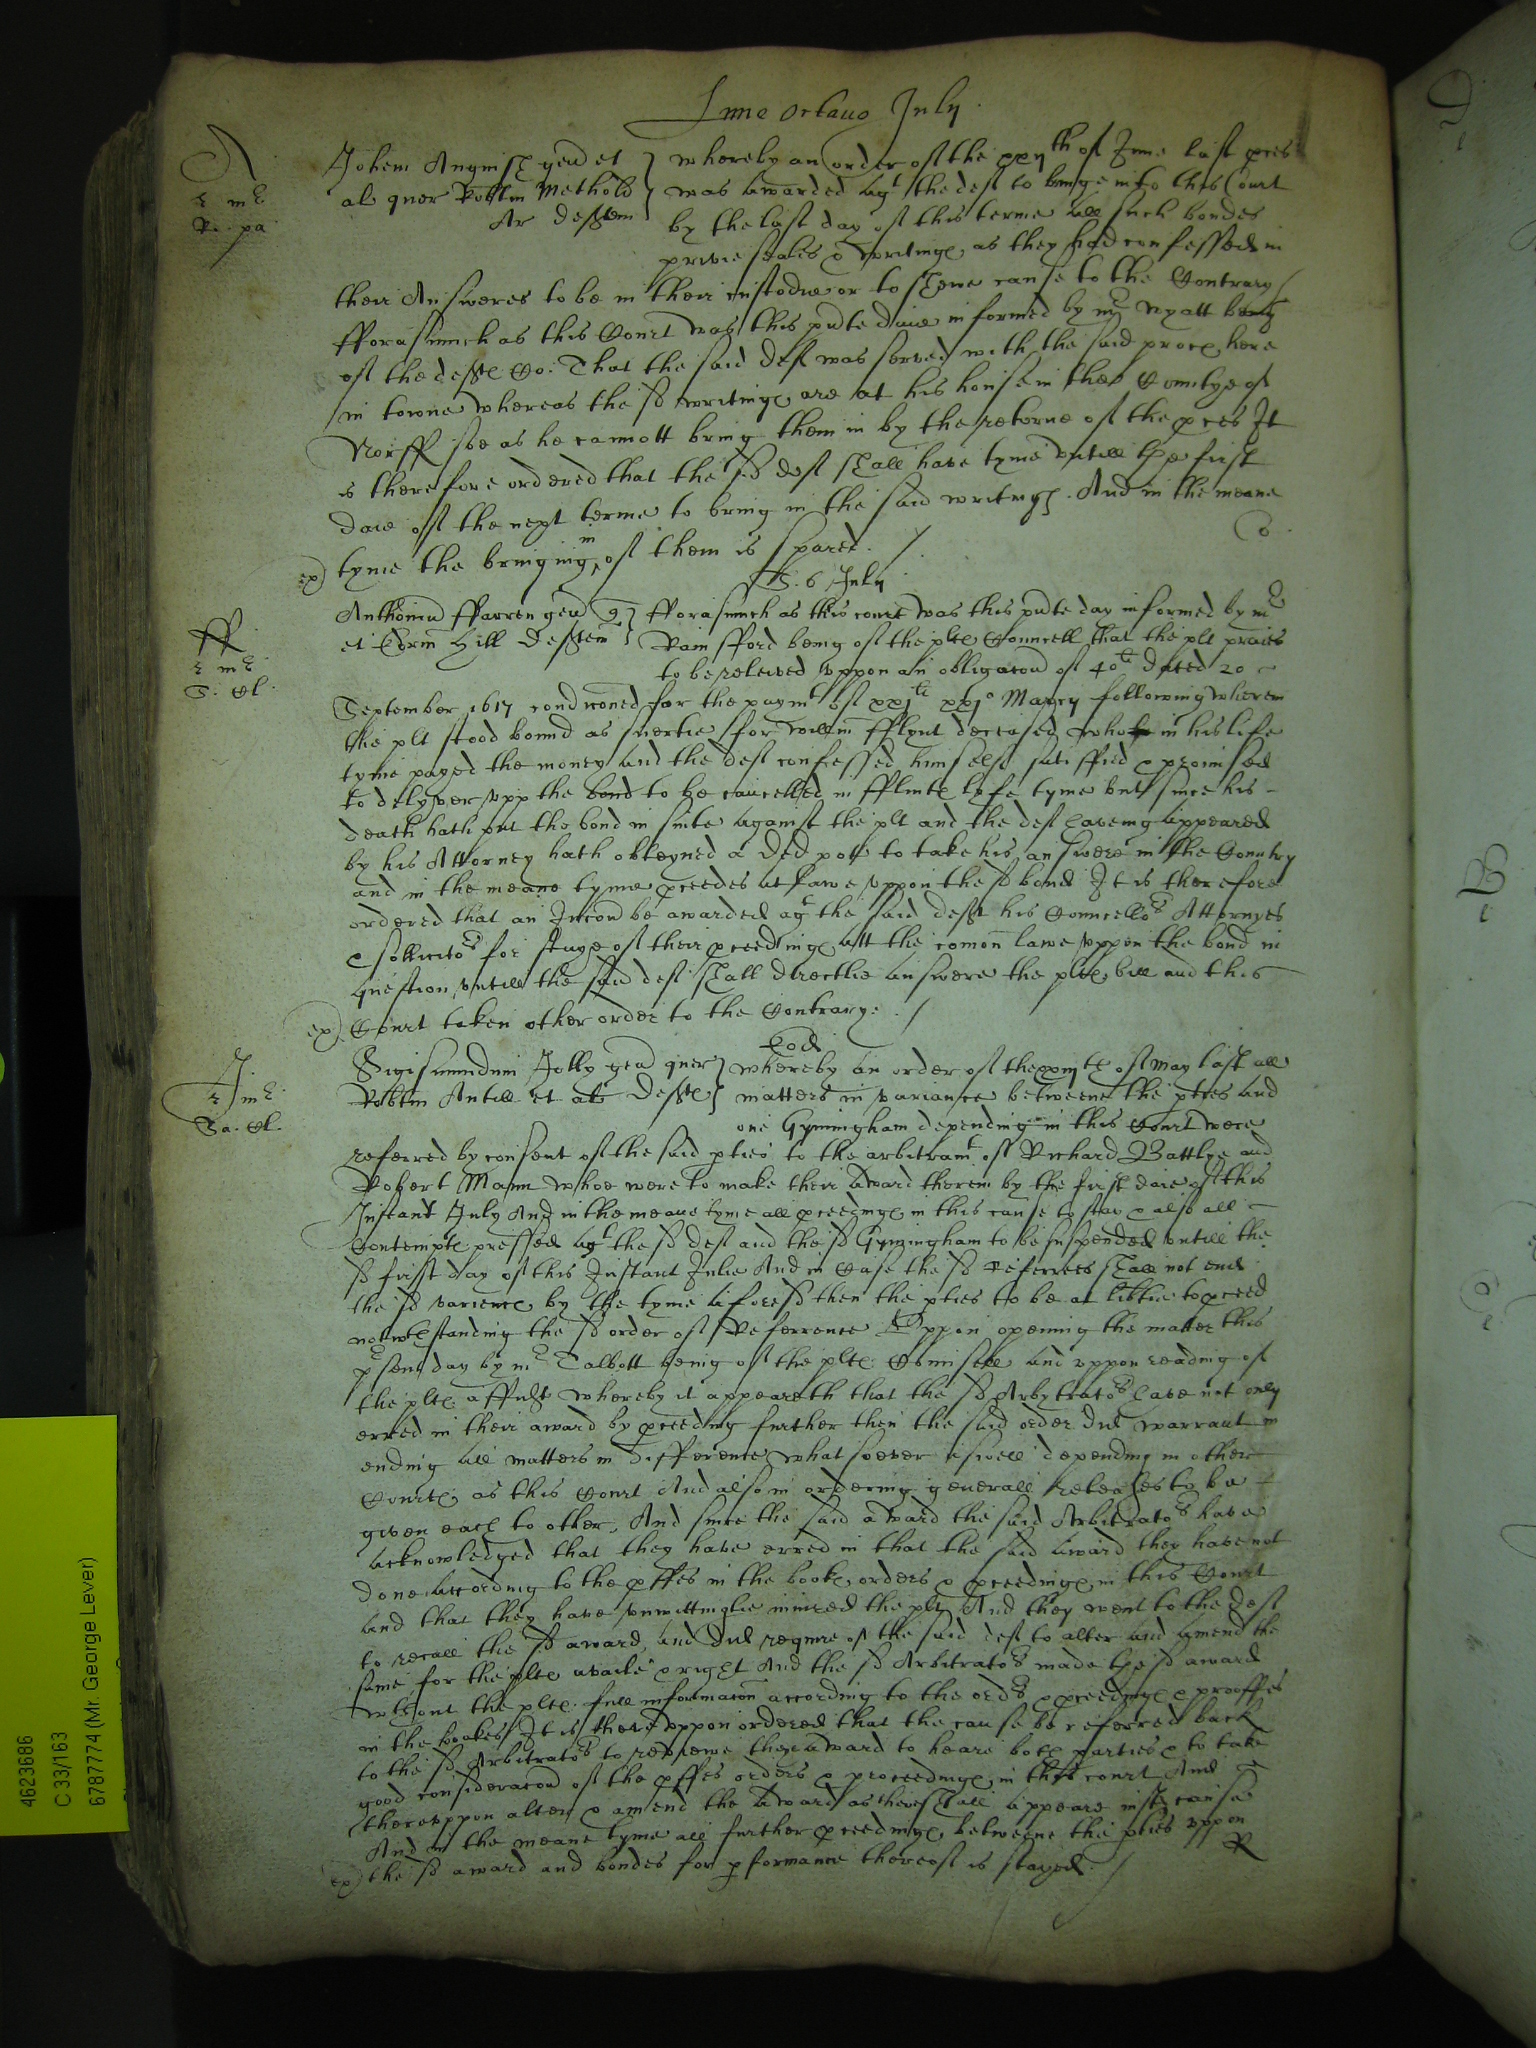 Lune octavo July
A
Johem Anguish gen et } whereby an order of the xxijth of June last proces
al quer Robtm Methold } was awarded agt the deft to bringe into this Court
r mr
Ar defftem by the last day of this terme all such bondes
Ri. pa
privie seales & writinge as they had confessed in
their Answeres to be in their custodie or to shewe cause to the Contrary
fforasmuch as this Court was this pnte daie informed by mr Wyatt being
of the deffte Co: That the said deft was served with the said proces here
in towne whereas the sd writinge are at his house in the Countye of
Norff soe as he cannott bring them in by the retorne of the proces It
is therefore ordered that the sd deft shall have tyme untill the first
daie of the next terme to bring in the said writinge. And in the meane
tyme the bringing in of them is spared.
S. 6 July
ff
Anthoniu ffarren gen q } fforasmuch as this court was this pnte day informed by mr
et Edrm Hill defftem } Rainsford being of the plte Councell that the plt praies
r mr
to be releived uppon an obligacon of 40li dated 20
September 1617 condiconed for the paymt of xxjli xxjo Marcij following wherein
the plt stood bound as suertie for willm fflynt deceased who in his life
tyme payed the money and the deft confessed himselfe satisfied & promised
to delyver upp the bond to be cancelled in fflints lyfe tyme but since his
death hath put the bond in suite against the plt and the deft haveing appeared
by his Attorney hath obteyned a Ded pot to take his answere in the Country
and in the meane tyme proceedes at lawe uppon the sd bond It is therefore
ordered that an Iniuncon be awarded agt the said deft his Councellors Attornyes
& sollicitors for staye of their proceedinge att the comon lawe uppon the bond in
question untill the said deft shall directlie answere the plte bill and this
Court taken other order to the Contrary.
Eod
J
Sigismundum Jolly gen quer } whereby an order of the xxiijth of May last all
Robtm Antill et al deffte } matters in variance betweene the pties and
r mr
one Gymingham depending in this Court were
referred by consent of the said pties to the arbitramt of Richard Battlye and
Robert Mann whoe were to make their award therein by the first daie of this
Instant July And in the meane tyme all proceedinge in this cause to stay & also all
Contempte pressed agt the sd deft and the sd Gymingham to be suspended untill the
sd first day of this Instant Julie And in Case the sd referrees shall not end
the sd varience by the tyme aforesd then the pties to be at libtie to proceed
notwthstanding the sd order of Referrence Uppon opening the matter this
psent day by mr Talbott being of the plte Counsell and uppon reading of
the plte affidt whereby it appeareth that the sd Arbytrators have not only
erred in their award by proceeding further then the said order did warrant in
ending all matters in difference whatsoever aswell depending in other
Courte as this Court And also in ordering generall releases to be
given each to other, And since the said award the said Arbitrators have
acknowledged that they have erred in that the said award they have not
done according to the proffes in the booke orders & proceedinge in this Court
and that they have unwittinglie iniured the plt And they went to the deft
to recall the sd award, and did require of the said deft to alter and amend the
same for the plte availe & right And the sd Arbitrators made the sd award
wthout the plte full informacon according to the ordrs & proceedinge & prooffes
in the bookes It is thereuppon ordered that the cause be referred back
to the sd Arbitrators to reveiwe their award to heare both parties & to take
good consideracon of the proffes orders & proceedinge in this court And
thereuppon alter & amend the award as there shall appeare iust cause
And in the meane tyme all further proceedinge betweene the pties uppon
the sd award and bondes for pformance thereof is stayed.
R
4623686
C 33/163
6787774 (Mr. George Lever)